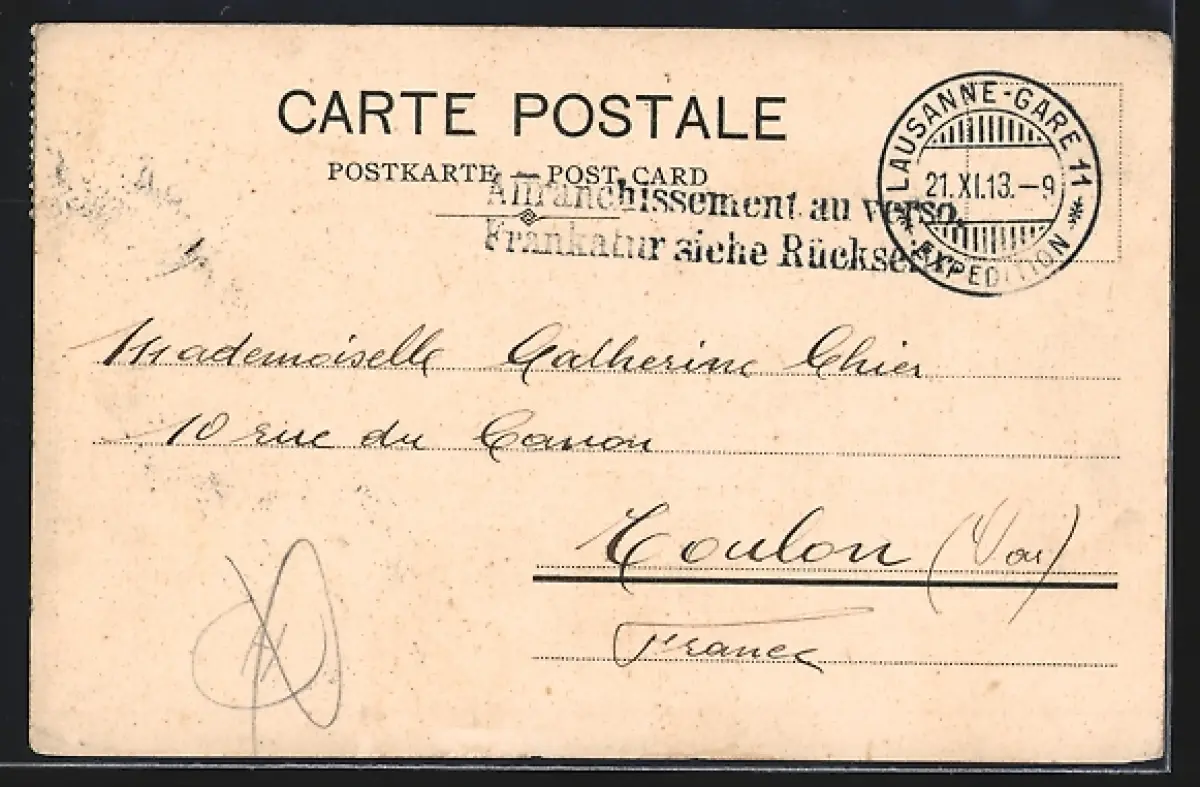 CARTE POSTALE
POSTKARTE — POST CARD
Affranchissement au verso.
Frankatur siehe Rückse
LAUSANNE-GARE 11
21.XI.13.–9
EXPEDITION
Mademoiselle Catherine Chier
10 rue du Canon
Toulon (Var)
France